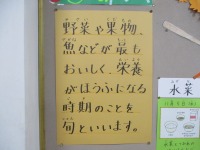 野菜や果物、
魚などが最も
おいしく、栄養
がほうふになる
時期のことを
旬といいます。
水菜